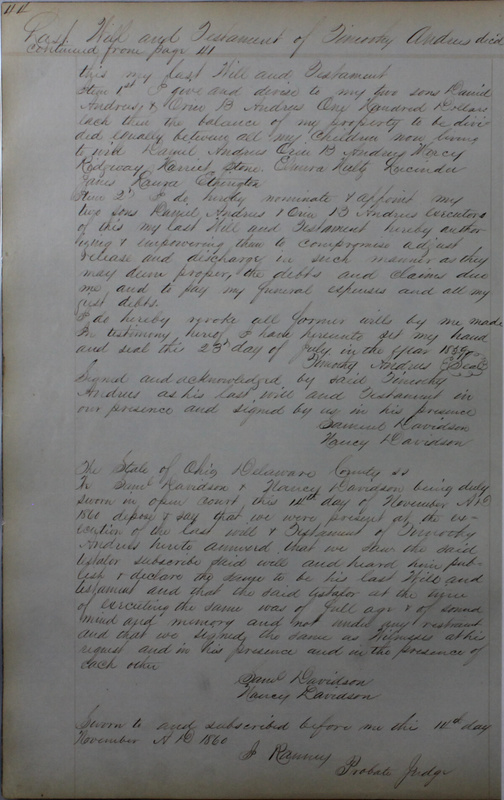 114
Last Will and Testament of Timothy Andrus dec'd
continued from page 41
this my last Will and Testament
Item 1st I give and devise to my two sons Daniel
Andrus, & Orin B Andrus One Hundred Dollars
each then the balance of my property to be divi
ded equally between all my children now living
to wit Daniel Andrus Orin B Andrus Mercy
Ridgway Harriet Stone. Emira Lucinda
Janes Laura
Item 2d I do hereby nominate & appoint my
two sons Daniel Andrus & Orin B Andrus executors
of this my last Will and Testament hereby author
izing & empowering them to compromise adjust
release and discharge in such manner as they
may deem proper, the debts and claims due
me and to pay my funeral expenses and all my
just debts.
I do hereby revoke all former wills by me made
In testimony hereof I have hereunto set my hand
and seal this 23d day of July in the year 1859
Timothy Andrus Seal
Signed and acknowledged by said Timothy
Andrus as his last will and Testament in
our presence and signed by us in his presence
Samuel Davidson
Nancy Davidson
The State of Ohio Delaware County ss
We Saml Davidson & Nancy Davidson being duly
sworn in open court this 14th day of November A D
1860 depose & say that we were present at the ex-
ecution of the last will & Testament of Timothy
Andrus hereto annexed that we saw the said
testator subscribe said will and heard him pub-
lish & declare the same to be his last Will and
testament and that the said testator at the time
of executing the same was of full age & of sound
mind and memory and not under any restraint
and that we signed the same as Witnesses at his
request and in his presence and in the presence of
each other
Saml Davidson
Nancy Davidson
Sworn to and subscribed before me this 14th day
November A D 1860
J Ranney
Probate Judge